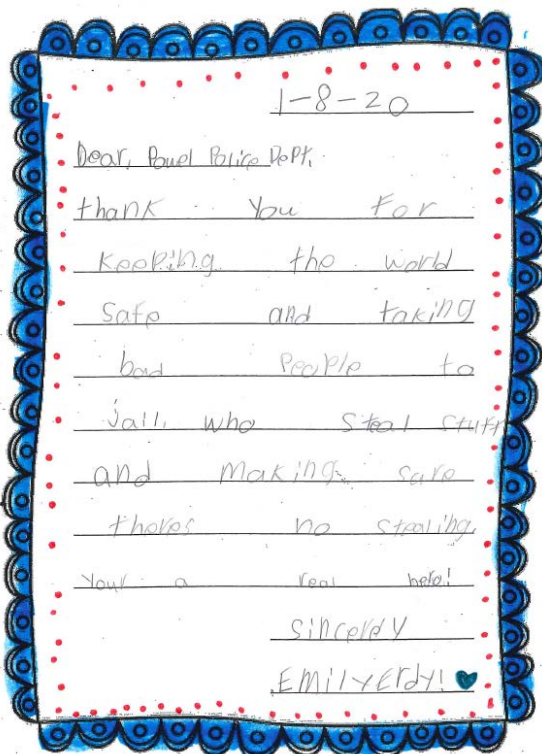 1-8-20
Dear, Powel Police Dept.
thank You For
Keeping the world
Safe and taking
bad People to
Jail, who Steal Stuff
and Making sure
theres no stealing
Your a real hero!
Sincerely
Emily Erdy!